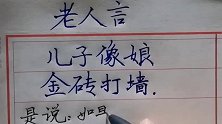 老人言
儿子像娘
金砖打墙.
是说:如